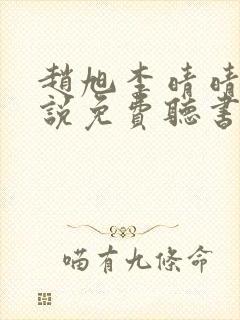 趙旭李晴晴
說免費聽書
喵有九條命